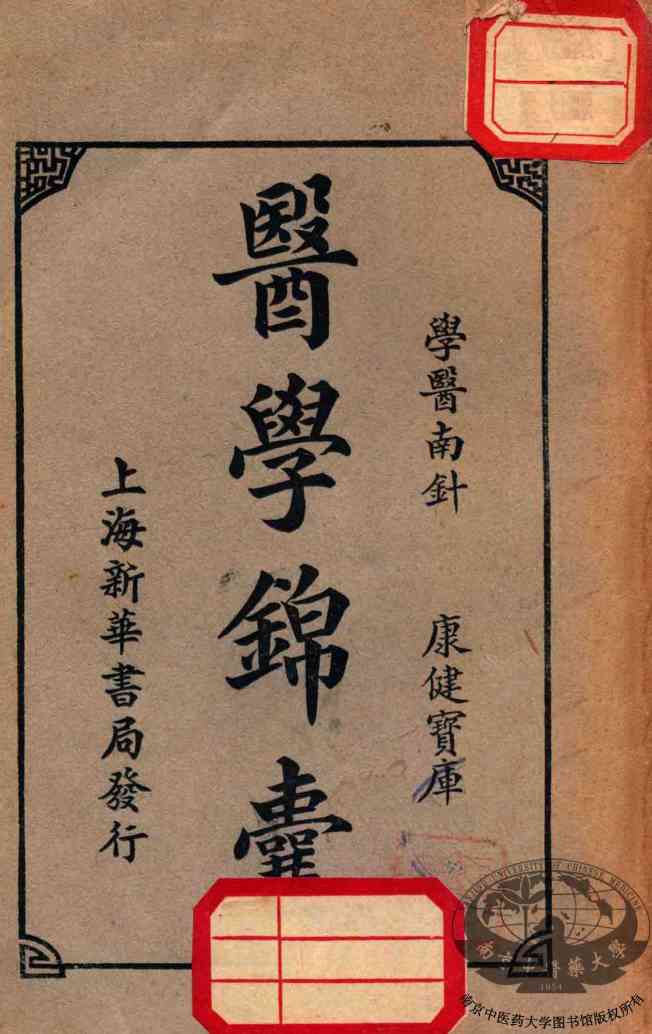 學醫南針 康健寶庫
醫學錦囊
上海新華書局發行
南京中醫藥大學
1954
南京中医药大学图书馆版权所有